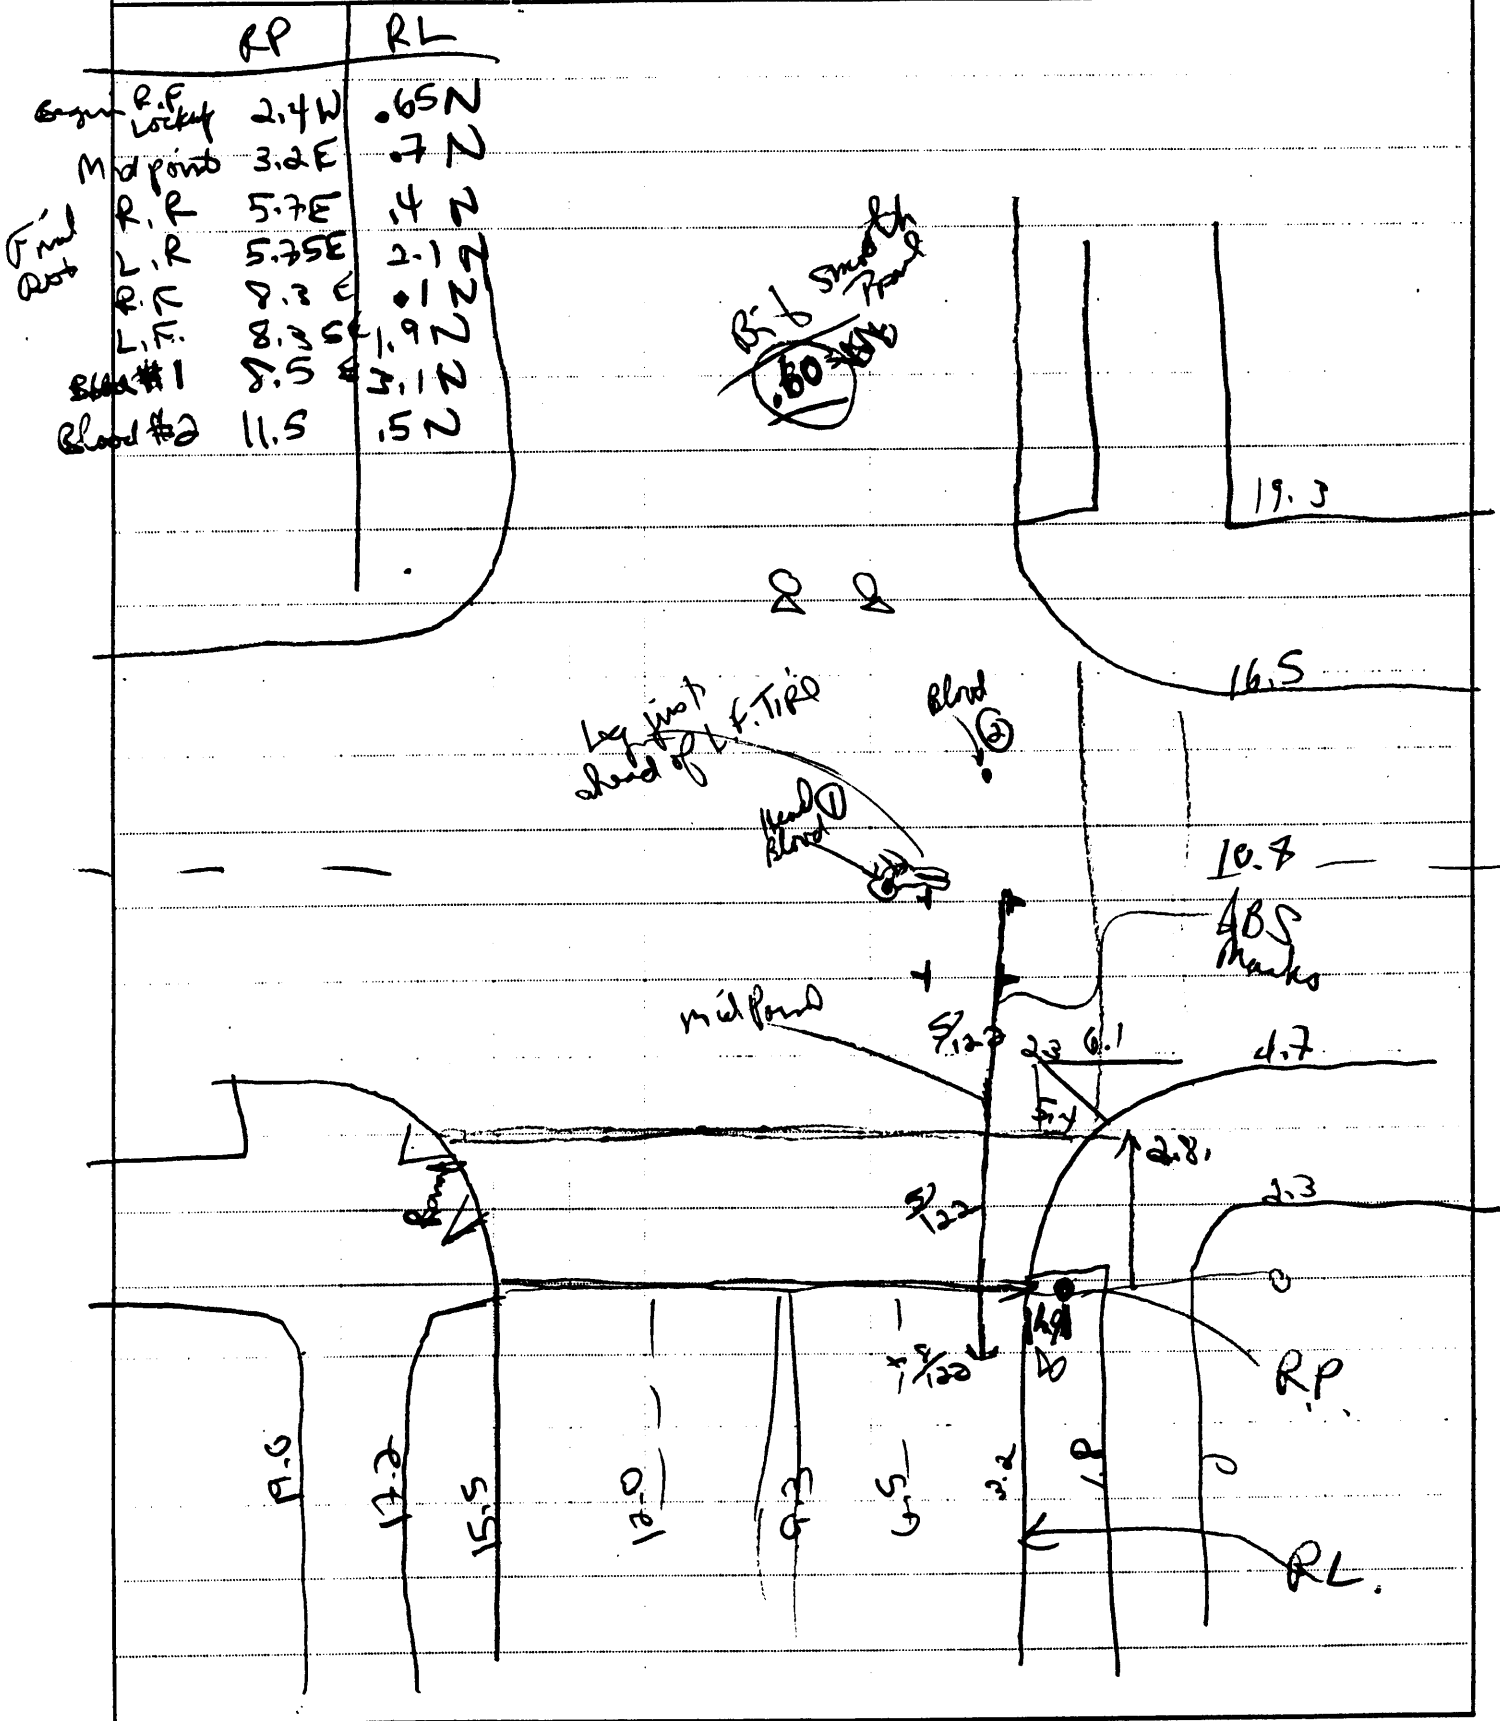 RP RL
R.F Lockup 2.4W .65N
Midpoint 3.2E .7N
Final
R.R 5.7E .4N
L.R 5.75E 2.1N
R.F 8.3E .1N
L.F. 8.35E 1.9N
Blood #1 8.5E 3.1N
Blood #2 11.5 .5N
Smooth
Bit
.80
19.3
16.5
Leg just
ahead of L.F. TIRE
Blood
2
Head 1
Blood
10.8
ABS
Marks
midPoint
5/122
2.3 6.1
4.7
5.4
2.8.
Ramp
2.3
5/122
0
R.P.
19.0
17.2
15.5
12.0
9.3
6.5
3.2
1.8
0
RL.